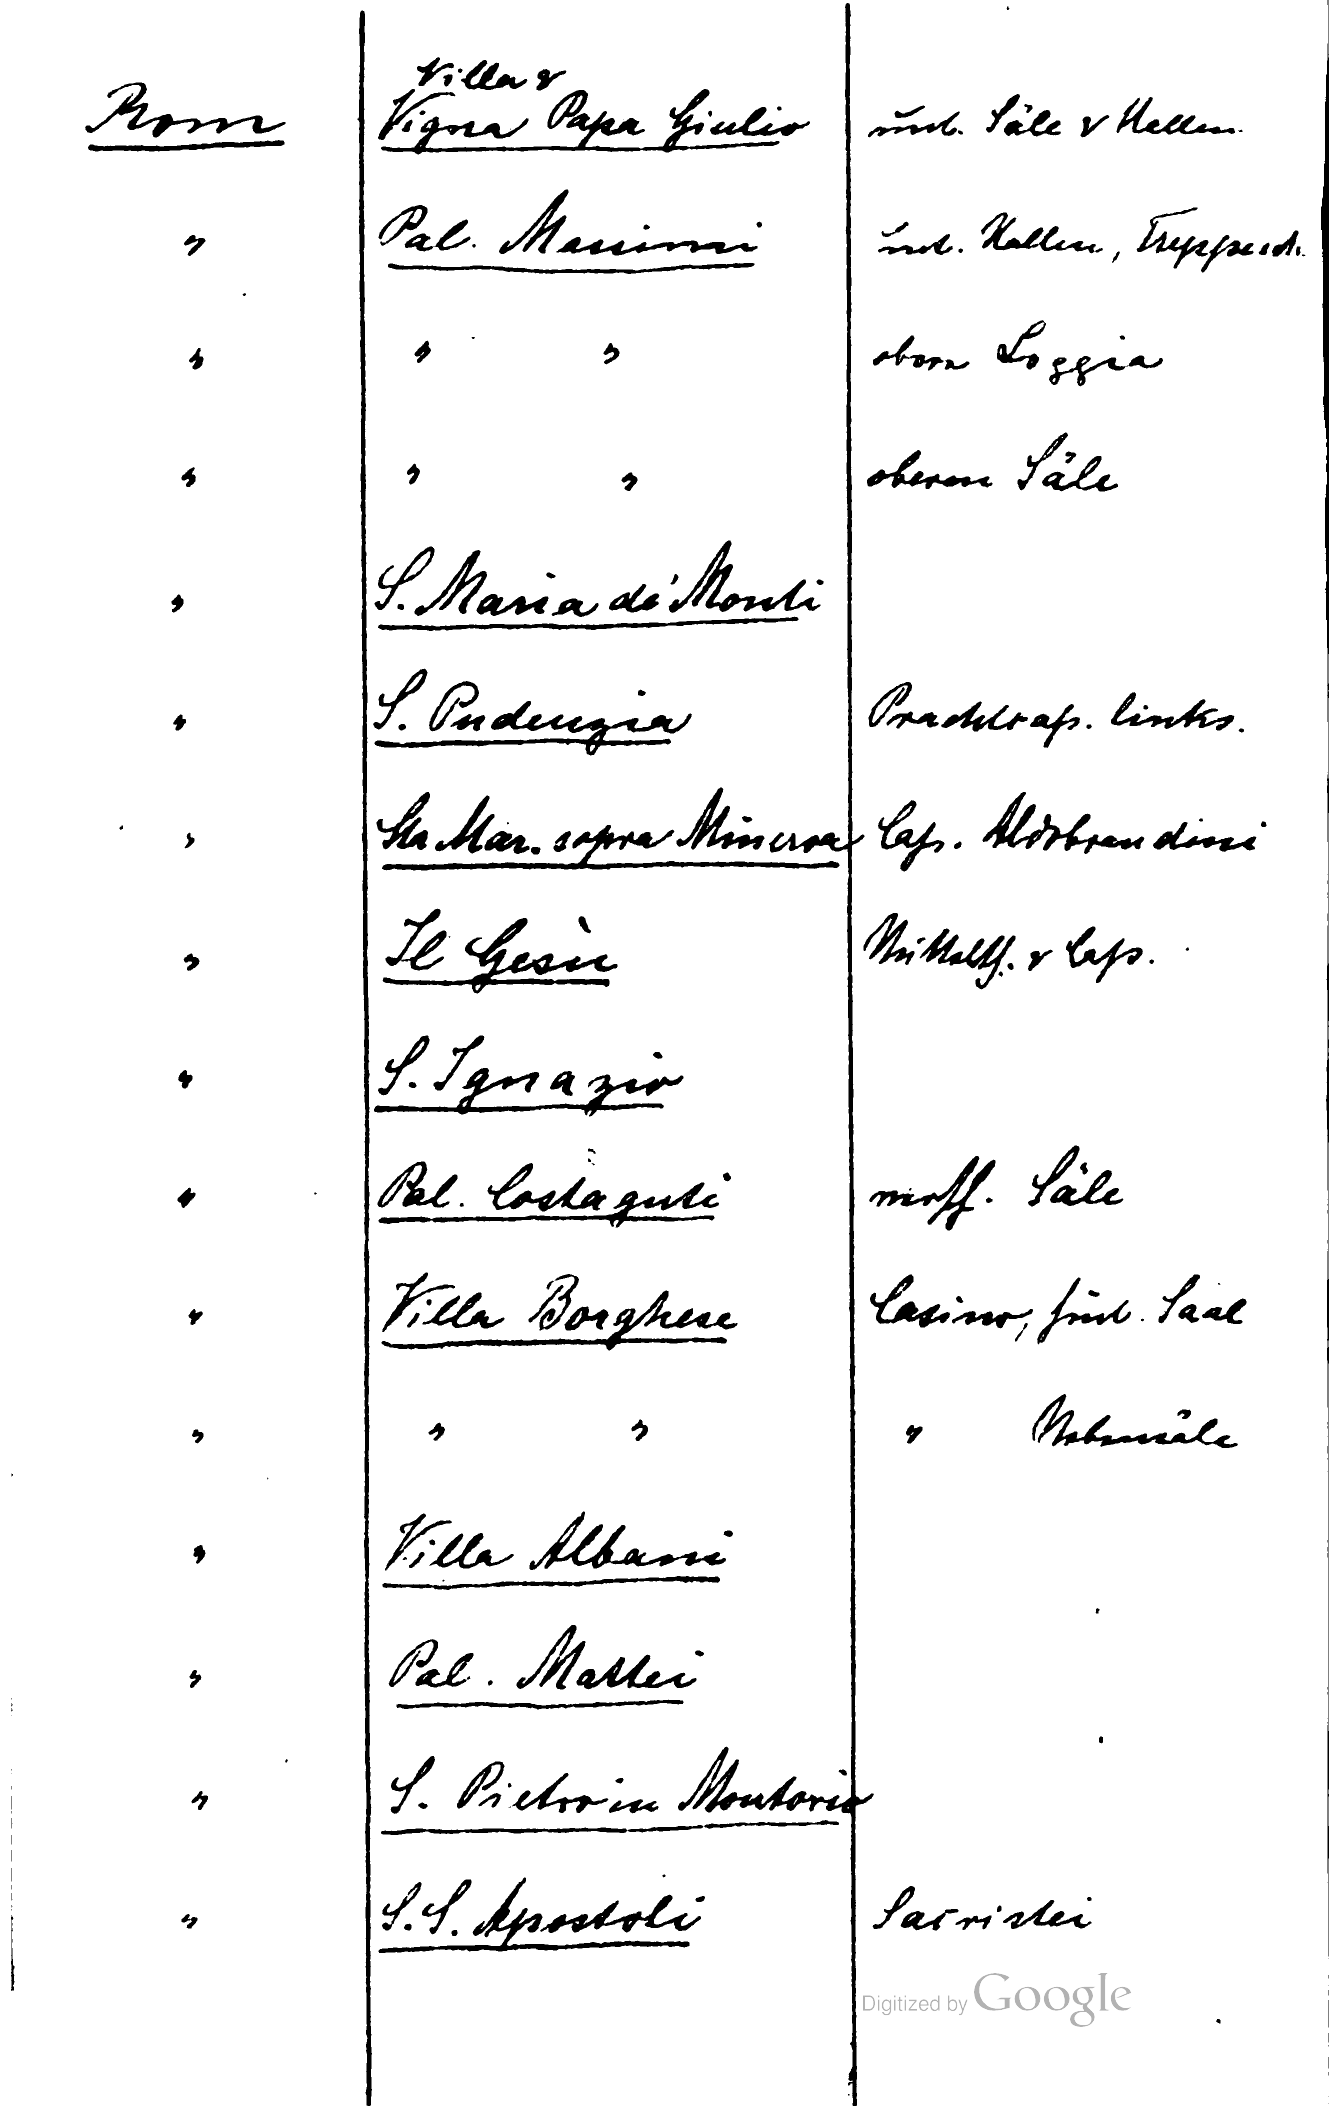 Villa &
Rom Vigna Papa Giulio unt. Säle & Hallen.
" Pal. Massimi unt. Hallen, Treppe etc.
" " " obere Loggia
" " " oberen Säle
" S. Maria de' Monti
" S. Pudenziа Prachtcap. links.
" Sta Mar. sopra Minerva Cap. Aldobrandini
" Il Gesù Mittelsch. & Cap.
" S. Ignazio
" Pal. Costaguti versch. Säle
" Villa Borghese Casino, Saal
" " " " Nebensäle
" Villa Albani
" Pal. Mattei
" S. Pietro in Montorio
" S.S. Apostoli Sacristei
Digitized by Google